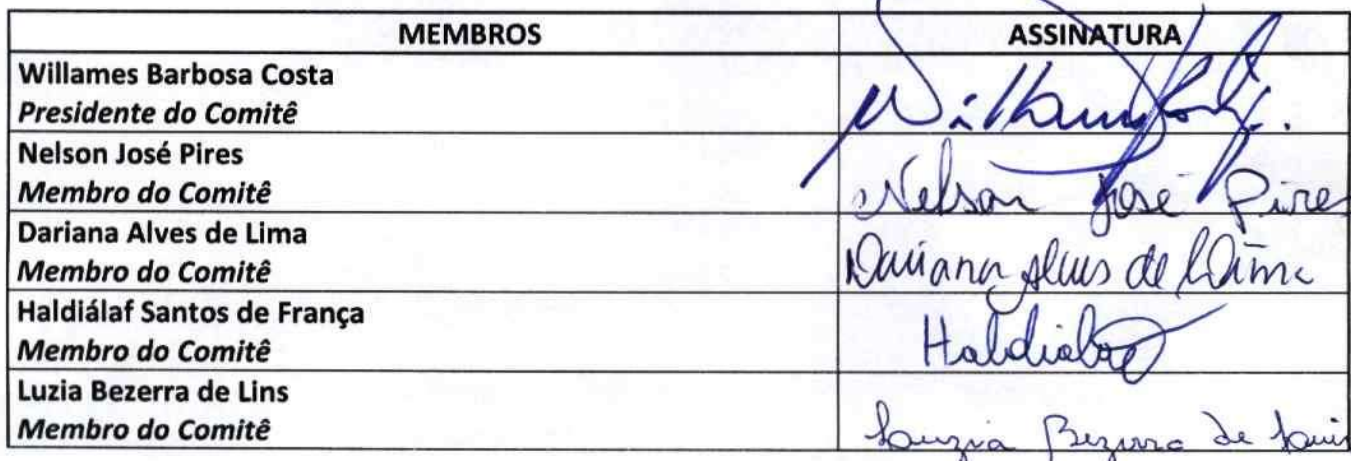 MEMBROS ASSINATURA
Willames Barbosa Costa
Presidente do Comitê
Nelson José Pires
Membro do Comitê
Nelson José Pires
Dariana Alves de Lima
Membro do Comitê
Dariana Alves de Lima
Haldiálaf Santos de França
Membro do Comitê
Luzia Bezerra de Lins
Membro do Comitê
Luzia Bezerra de Lins